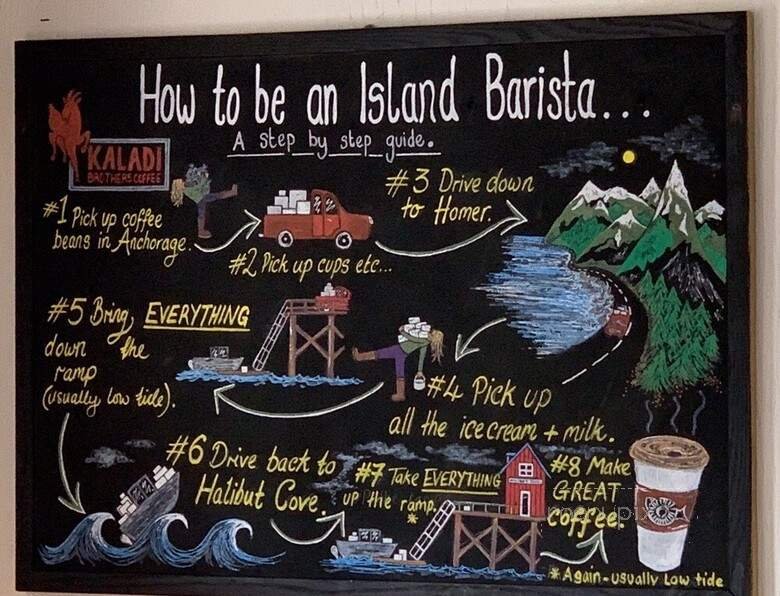 How to be an Island Barista...
A step by step guide.
KALADI
BROTHERS COFFEE
#1 Pick up coffee
beans in Anchorage.
#2 Pick up cups etc...
#3 Drive down
to Homer.
#4 Pick up
all the icecream + milk.
#5 Bring EVERYTHING
down the
ramp
(usually low tide).
#6 Drive back to
Halibut Cove.
#7 Take EVERYTHING
up the ramp.
*
#8 Make
GREAT
coffee!
menupix
*Again-usually low tide